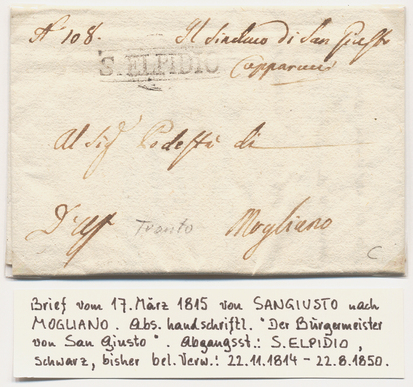 N° 108. Il Sindaco di San Giusto
S. ELPIDIO
Al Sig.r Podestà di
D'Uff Tronto Mogliano
C
Brief vom 17. März 1815 von SANGIUSTO nach
MOGLIANO. Abs. handschriftl. "Der Bürgermeister
von San Giusto". Abgangsst.: S.ELPIDIO,
schwarz, bisher bel. Verw.: 22.11.1814 - 22.8.1850.